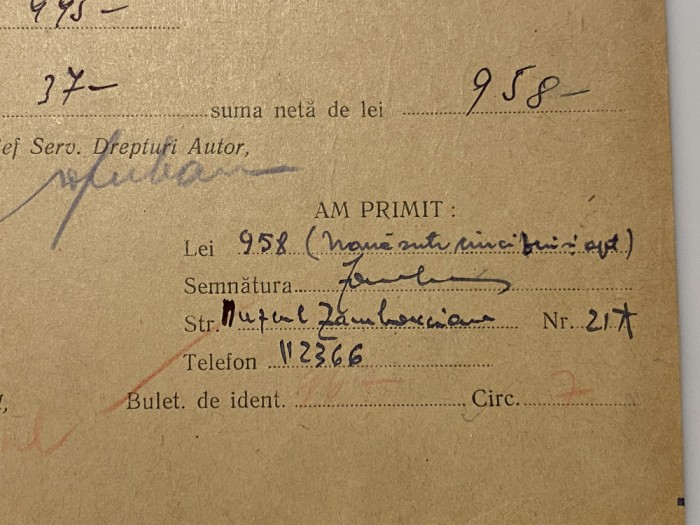 995-
37- suma netă de lei 958-
ef Serv. Drepturi Autor,
AM PRIMIT :
Lei 958 (Nouă sute cinci zeci și opt)
Semnătura
Str. Muzeul Zambaccian Nr. 21A
Telefon 112366
Bulet. de ident. Circ. 7